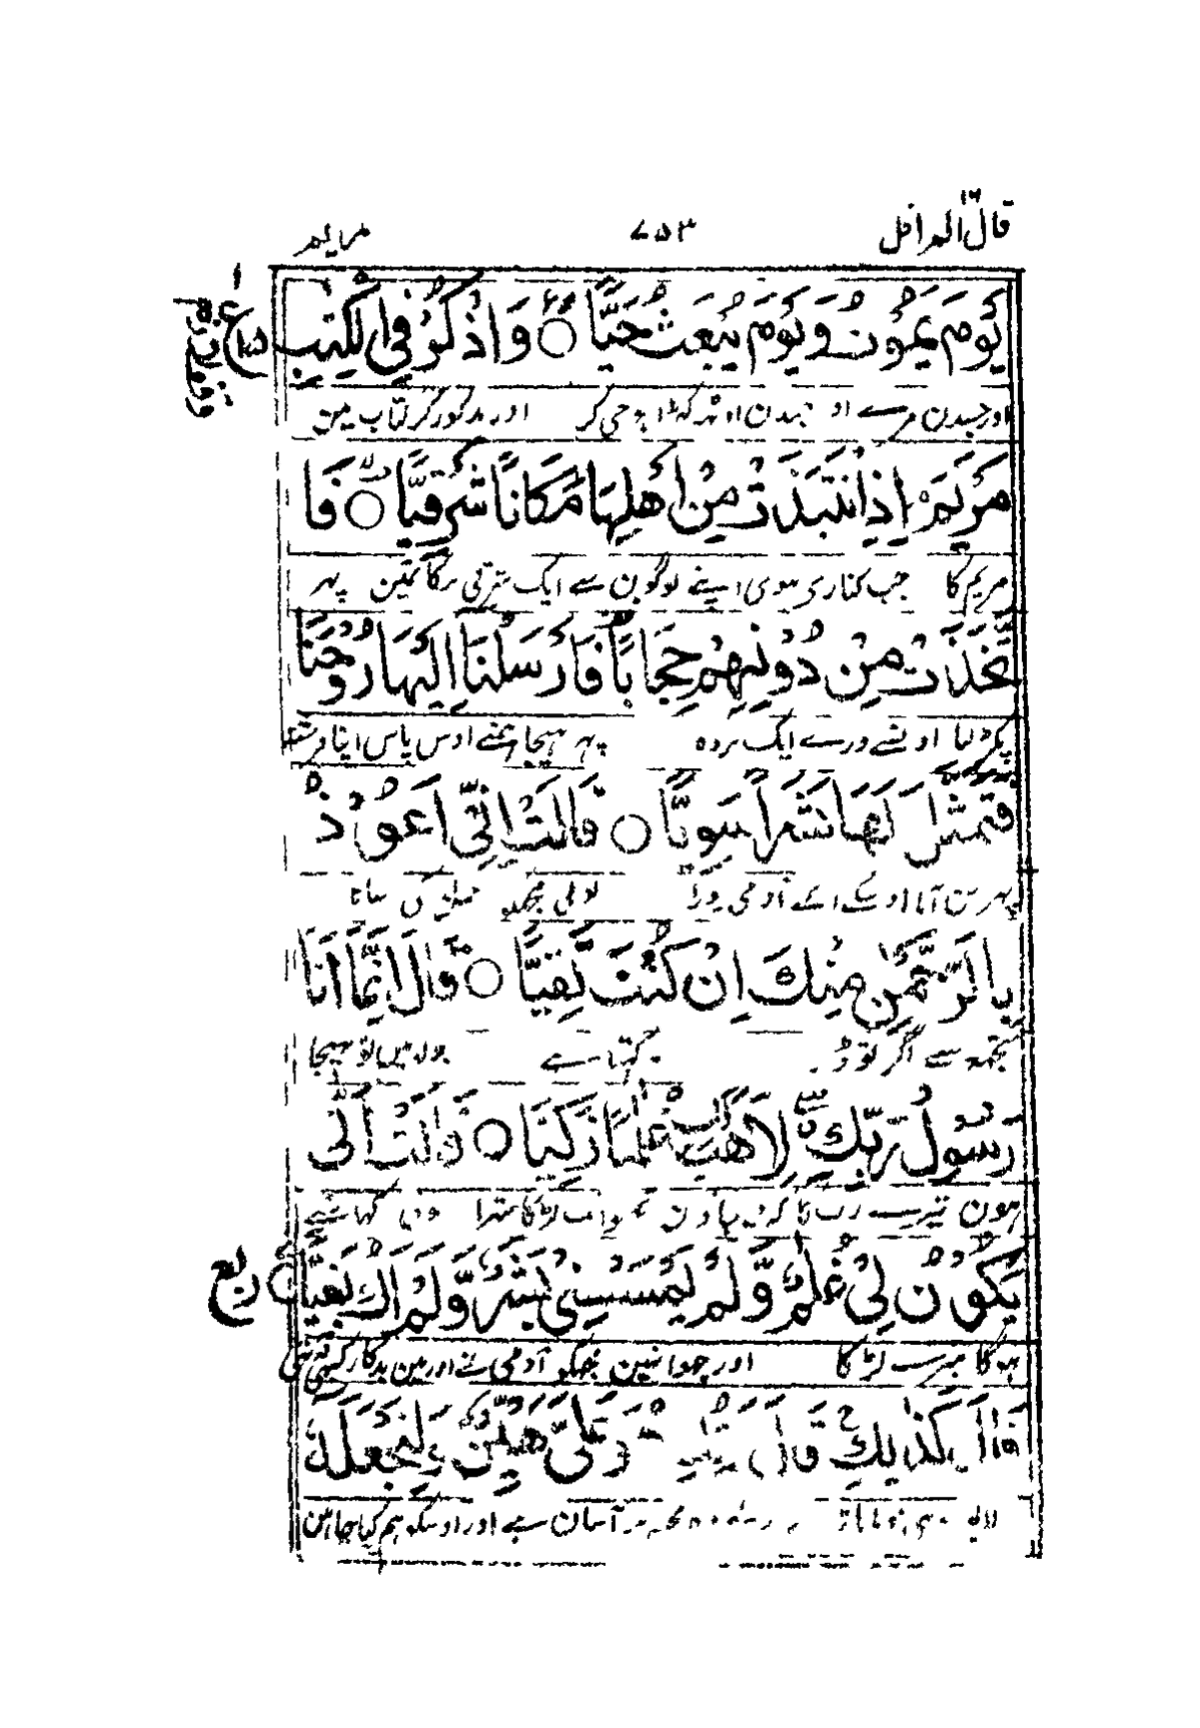 قال الم ۱۶
۷۵۳
مریم
يَوْمَ يَمُوْتُ وَيَوْمَ يُبْعَثُ حَيًّا ○ وَاذْكُرْ فِي الْكِتٰبِ
اور جسدن مرے او جسدن اوٹھ کھڑا ہو جی کر اور مذکور کر کتاب مین
مَرْيَمَ اِذِ انْتَبَذَتْ مِنْ اَهْلِهَا مَكَانًا شَرْقِيًّا ○ فَا
مریم کا جب کناری ہوی اپنے لوگون سے ایک شرقی مکان مین پہر
تَّخَذَتْ مِنْ دُوْنِهِمْ حِجَابًا فَاَرْسَلْنَا اِلَيْهَا رُوْحَنَا
پکڑ لیا اونسے ورے ایک پردہ پہر بھیجا ہمنے اوس پاس اپنا فرشتہ
فَتَمَثَّلَ لَهَا بَشَرًا سَوِيًّا ○ قَالَتْ اِنِّيْ اَعُوْذُ
پہر بن آیا اوسکے آگے آدمی پورا بولی مجھکو
بِالرَّحْمٰنِ مِنْكَ اِنْ كُنْتَ تَقِيًّا ○ قَالَ اِنَّمَا اَنَا
تجھہ سے اگر تو ڈر رکھتا ہے بولا مین تو بھیجا
رَسُوْلُ رَبِّكِ لِاَهَبَ لَكِ غُلٰمًا زَكِيًّا ○ قَالَتْ اَنّٰى
ہون تیرے رب کا کہ دے جاؤن تجکو ایک لڑکا ستھرا
يَكُوْنُ لِيْ غُلٰمٌ وَّلَمْ يَمْسَسْنِيْ بَشَرٌ وَّلَمْ اَكُ بَغِيًّا ○
ربع
ہوگا میرے لڑکا اور چھوا نہین مجھکو آدمی نے اور مین بدکار کبھی نتھی
قَالَ كَذٰلِكِ قَالَ رَبُّكِ هُوَ عَلَيَّ هَيِّنٌ وَلِنَجْعَلَهٗ
آسان ہے اور اوسکو ہم کیا چاہین